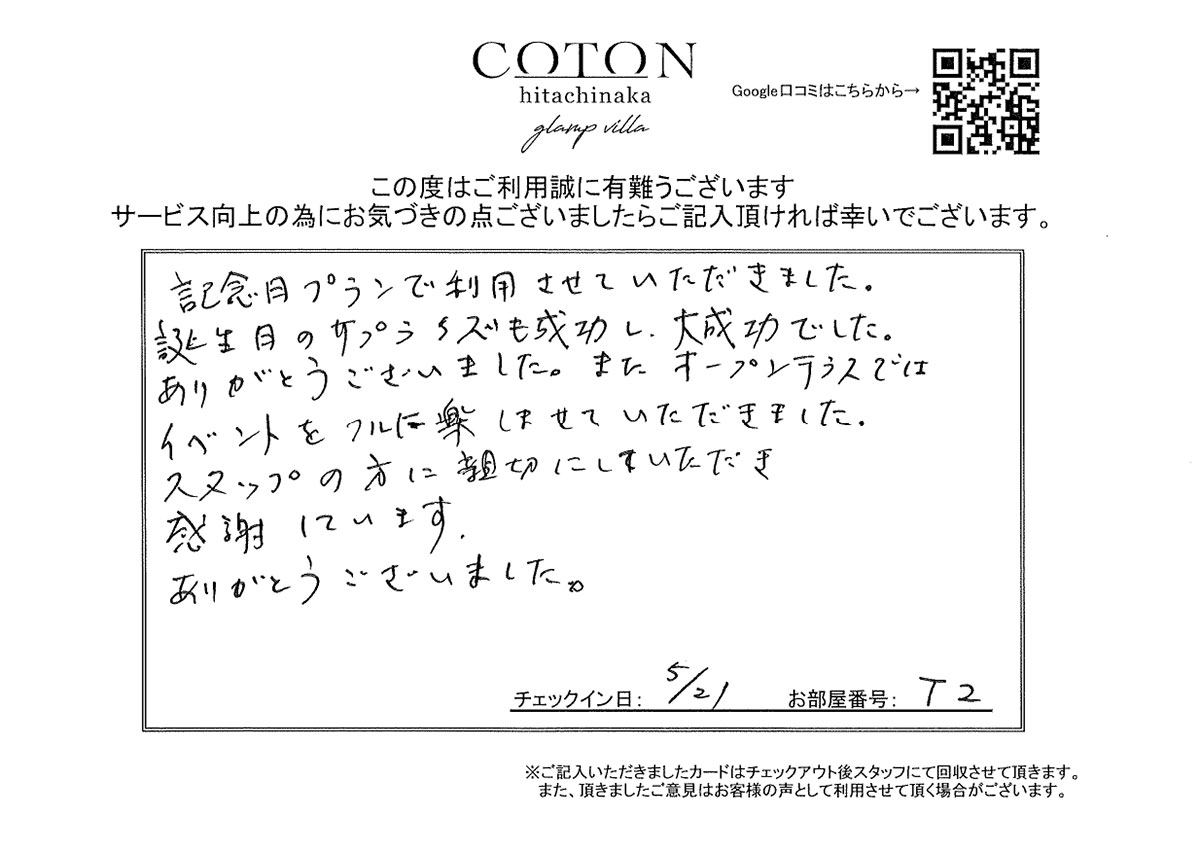 COTON
hitachinaka
glamp villa
Google口コミはこちらから→
この度はご利用誠に有難うございます
サービス向上の為にお気づきの点ございましたらご記入頂ければ幸いでございます。
記念日プランで利用させていただきました。
誕生日のサプライズも成功し、大成功でした。
ありがとうございました。また オープンテラスでは
イベントをフルに楽しませていただきました。
スタッフの方に親切にしていただき
感謝しています.
ありがとうございました。
チェックイン日： 5/21 お部屋番号： T2
※ご記入いただきましたカードはチェックアウト後スタッフにて回収させて頂きます。
また、頂きましたご意見はお客様の声として利用させて頂く場合がございます。